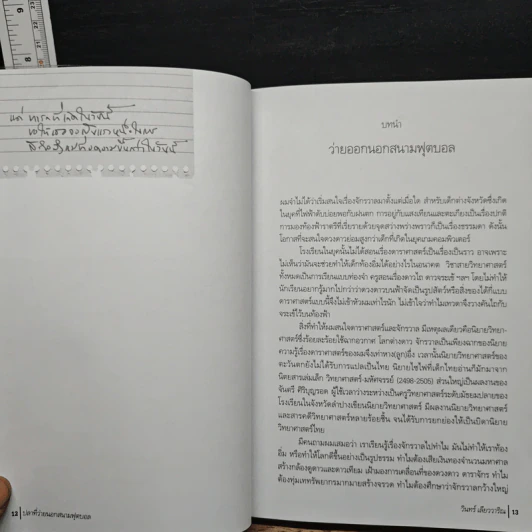 แด่ ทารกที่เกิดในวันนี้
บทนำ
ว่ายออกนอกสนามฟุตบอล
ผมจำไม่ได้ว่าเริ่มสนใจเรื่องจักรวาลมาตั้งแต่เมื่อใด สำหรับเด็กต่างจังหวัดซึ่งเกิด
ในยุคที่ไฟฟ้าดับบ่อยพอกับฝนตก การอยู่กับแสงเทียนและตะเกียงเป็นเรื่องปกติ
การมองท้องฟ้าราตรีที่เรี่ยรายด้วยจุดสว่างพร่างพราวก็เป็นเรื่องธรรมดา ดังนั้น
โอกาสที่จะสนใจดวงดาวย่อมสูงกว่าเด็กที่เกิดในยุคเกมคอมพิวเตอร์
โรงเรียนในยุคนั้นไม่ได้สอนเรื่องดาราศาสตร์เป็นเรื่องเป็นราว อาจเพราะ
ไม่เห็นว่ามันจะช่วยทำให้เด็กท้องอิ่มได้อย่างไรในอนาคต วิชาสายวิทยาศาสตร์
ทั้งหมดเป็นการเรียนแบบท่องจำ ครูสอนเรื่องดาวไถ ดาวจระเข้ ฯลฯ โดยไม่ทำให้
นักเรียนอยากรู้มากไปกว่าว่าดวงดาวบนฟ้าจัดเป็นรูปสัตว์หรือสิ่งของได้กี่แบบ
ดาราศาสตร์แบบนี้จึงไม่เข้าหัวผมเท่าไรนัก ไม่เข้าใจว่าทำไมเทวดาจึงวางคันไถกับ
จระเข้ไว้บนท้องฟ้า
สิ่งที่ทำให้ผมสนใจดาราศาสตร์และจักรวาล มีเหตุผลเดียวคือนิยายวิทยา-
ศาสตร์ซึ่งร้อยละร้อยใช้ฉากอวกาศ โลกต่างดาว จักรวาลเป็นเพียงฉากของนิยาย
ความรู้เรื่องดาราศาสตร์ของผมจึงเท่าหาง(ลูก)อึ่ง เวลานั้นนิยายวิทยาศาสตร์ของ
ตะวันตกยังไม่ได้รับการแปลเป็นไทย นิยายไซไฟที่เด็กไทยอ่านก็มักมาจาก
นิตยสารเล่มเล็ก วิทยาศาสตร์-มหัศจรรย์ (2498-2505) ส่วนใหญ่เป็นผลงานของ
จันตรี ศิริบุญรอด ผู้ใช้เวลาว่างระหว่างเป็นครูวิทยาศาสตร์ระดับมัธยมปลายของ
โรงเรียนในจังหวัดลำปางเขียนนิยายวิทยาศาสตร์ มีผลงานนิยายวิทยาศาสตร์
และสารคดีวิทยาศาสตร์หลายร้อยชิ้น จนได้รับการยกย่องให้เป็นบิดานิยาย
วิทยาศาสตร์ไทย
มีคนถามผมเสมอว่า เราเรียนรู้เรื่องจักรวาลไปทำไม มันไม่ทำให้เราท้อง
อิ่ม หรือทำให้โลกดีขึ้นอย่างเป็นรูปธรรม ทำไมต้องเสียเงินทองจำนวนมหาศาล
สร้างกล้องดูดาวและดาวเทียม เฝ้ามองการเคลื่อนที่ของดวงดาว ดาราจักร ทำไม
ต้องทุ่มเททรัพยากรมากมายสร้างจรวด ทำไมต้องศึกษาว่าจักรวาลกว้างใหญ่
12 | ปลาที่ว่ายนอกสนามฟุตบอล
วินทร์ เลียววาริณ | 13